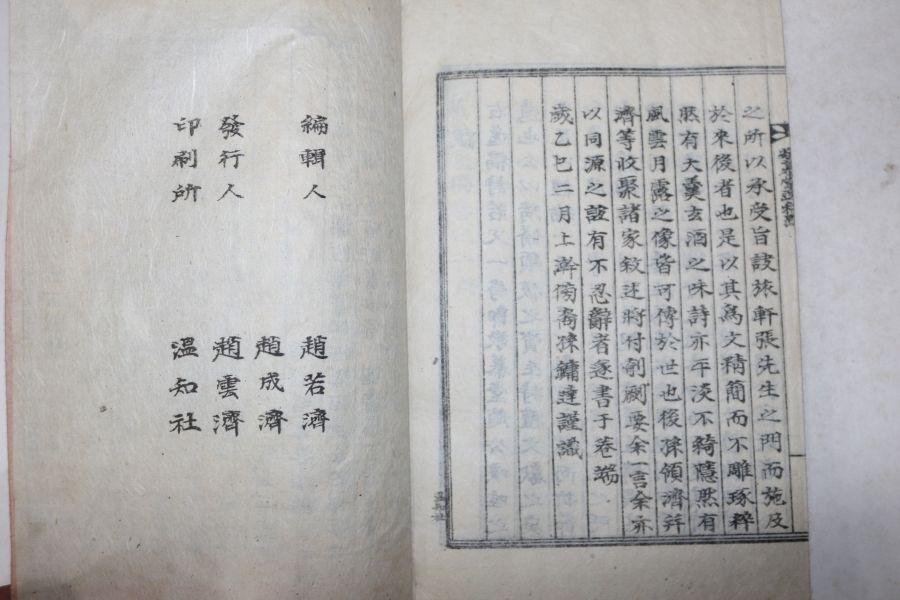 之所以承受旨訣旅軒張先生之門而施及
於來後者也是以其爲文精簡而不雕琢粹
然有大羹玄酒之味詩亦平淡不綺隱然有
風雲月露之像皆可傳於世也後孫領濟幷
濟等收聚諸家敘述將付剞劂要余一言余亦
以同源之誼有不忍辭者遂書于卷端
歲乙巳二月上澣傍裔孫鏞達謹識
編輯人 趙若濟
趙成濟
發行人 趙雲濟
印刷所 溫知社